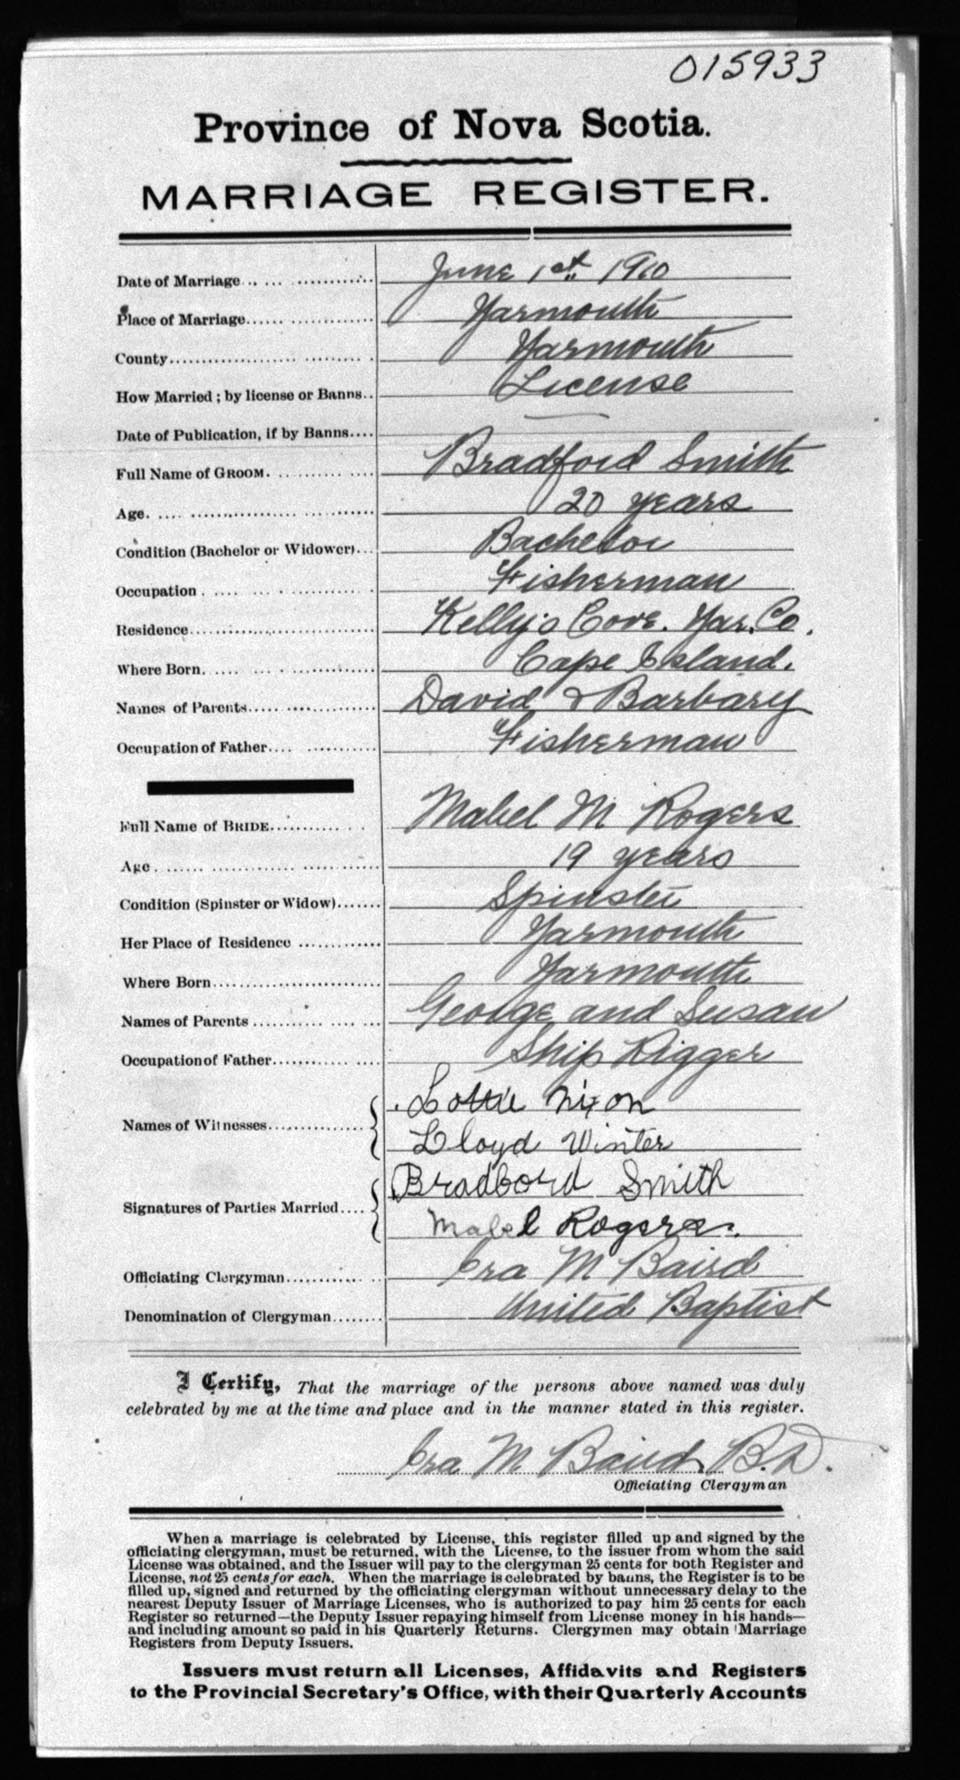 015933
Province of Nova Scotia.
MARRIAGE REGISTER.
Date of Marriage June 1st 1910
Place of Marriage Yarmouth
County Yarmouth
How Married; by license or Banns.. License
Date of Publication, if by Banns....
Full Name of GROOM. Bradford Smith
Age. 20 years
Condition (Bachelor or Widower)... Bachelor
Occupation Fisherman
Residence Kelly's Cove. Yar. Co.
Where Born. Cape Island.
Names of Parents David & Barbary
Occupation of Father Fisherman
Full Name of BRIDE Mabel M Rogers
Age 19 years
Condition (Spinster or Widow) Spinster
Her Place of Residence Yarmouth
Where Born Yarmouth
Names of Parents George and Susan
Occupation of Father Ship Rigger
Names of Witnesses Lottie Nixon
Lloyd Winter
Signatures of Parties Married Bradbord Smith
Mabel Rogers.
Officiating Clergyman Ira M Baird
Denomination of Clergyman United Baptist
I Certify, That the marriage of the persons above named was duly
celebrated by me at the time and place and in the manner stated in this register.
Ira M Baird, B.D.
Officiating Clergyman
When a marriage is celebrated by License, this register filled up and signed by the
officiating clergyman, must be returned, with the License, to the issuer from whom the said
License was obtained, and the Issuer will pay to the clergyman 25 cents for both Register and
License, not 25 cents for each. When the marriage is celebrated by banns, the Register is to be
filled up, signed and returned by the officiating clergyman without unnecessary delay to the
nearest Deputy Issuer of Marriage Licenses, who is authorized to pay him 25 cents for each
Register so returned—the Deputy Issuer repaying himself from License money in his hands—
and including amount so paid in his Quarterly Returns. Clergymen may obtain Marriage
Registers from Deputy Issuers.
Issuers must return all Licenses, Affidavits and Registers
to the Provincial Secretary's Office, with their Quarterly Accounts